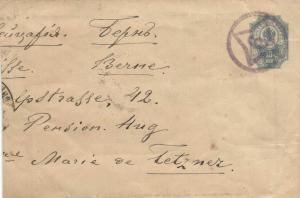 ...ейцарія. Бернъ.
...sse. Berne.
...lpstrasse, 42.
Pension Hug
Marie de Tetzner